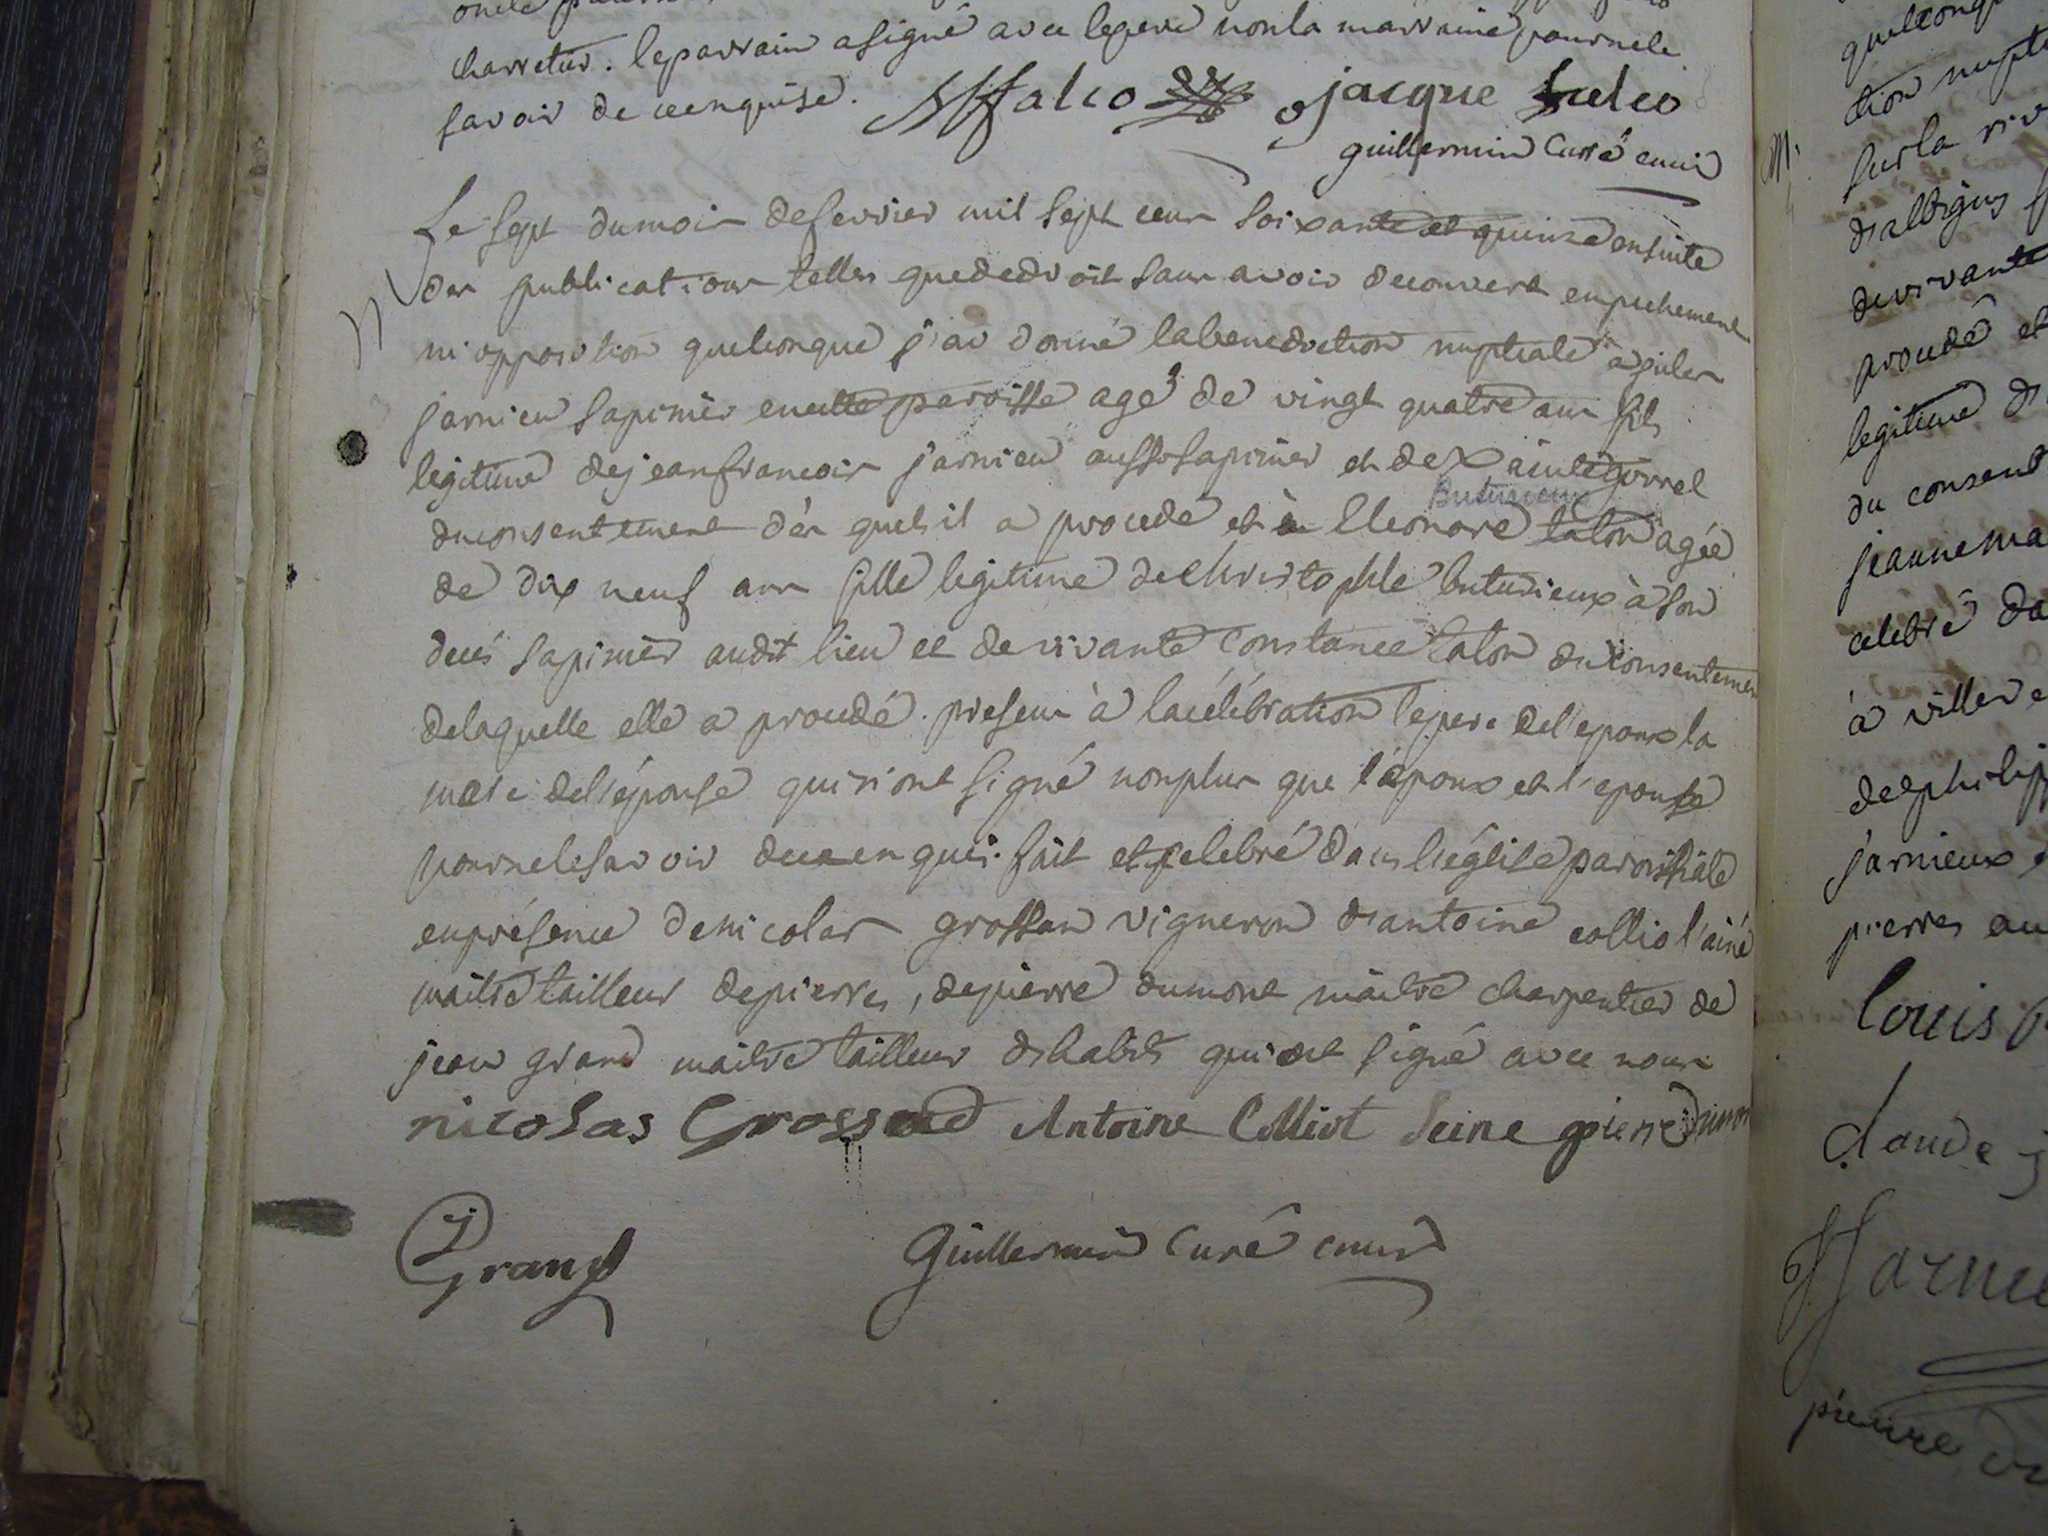 charretier. le parrain a signé avec le pere non la marraine pour ne le
savoir de ce enquise. Falco jacque falco
guillermin Curé
Le sept du mois de fevrier mil sept cens soixante et quinze ensuite
des publications telles que de droit sans avoir decouvert empechement
ni opposition quelconque j'ai donné la benediction nuptiale a
jarnieu sapinier en cette paroisse agé de vingt quatre ans fils
legitime de jean francois jarnieu aussi sapinier et de gorrel
du consentement des quels il a procedé et à Eleonore talon agée
Buturieux
de dix neuf ans fille legitime de Christophle buturieux à son
deces sapinier audit lieu et de vivante Constance talon du consentement
de laquelle elle a procedé. presens à la célébration le pere de l'epoux la
mere de l'épouse qui n'ont signé non plus que l'époux et l'epouse
pour ne le savoir de ce enquis. fait et celebré dans l'église paroissiale
en présence de nicolas grossan vigneron d'antoine collio l'ainé
maitre tailleur de pierres, de pierre dumont maitre charpentier de
jean grand maitre tailleur d'habits qui ont signé avec nous
nicolas Grossand Antoine Colliot leine pierre Dumon
j Grand Guillermin Curé
quelconque
tion nupt
sur la
d'albigny
de vivante
procedé et
legitime d
du consent
jeanne ma
celebré da
à viller
de philip
jarnieux
pierres au
Louis
claude j
pierre